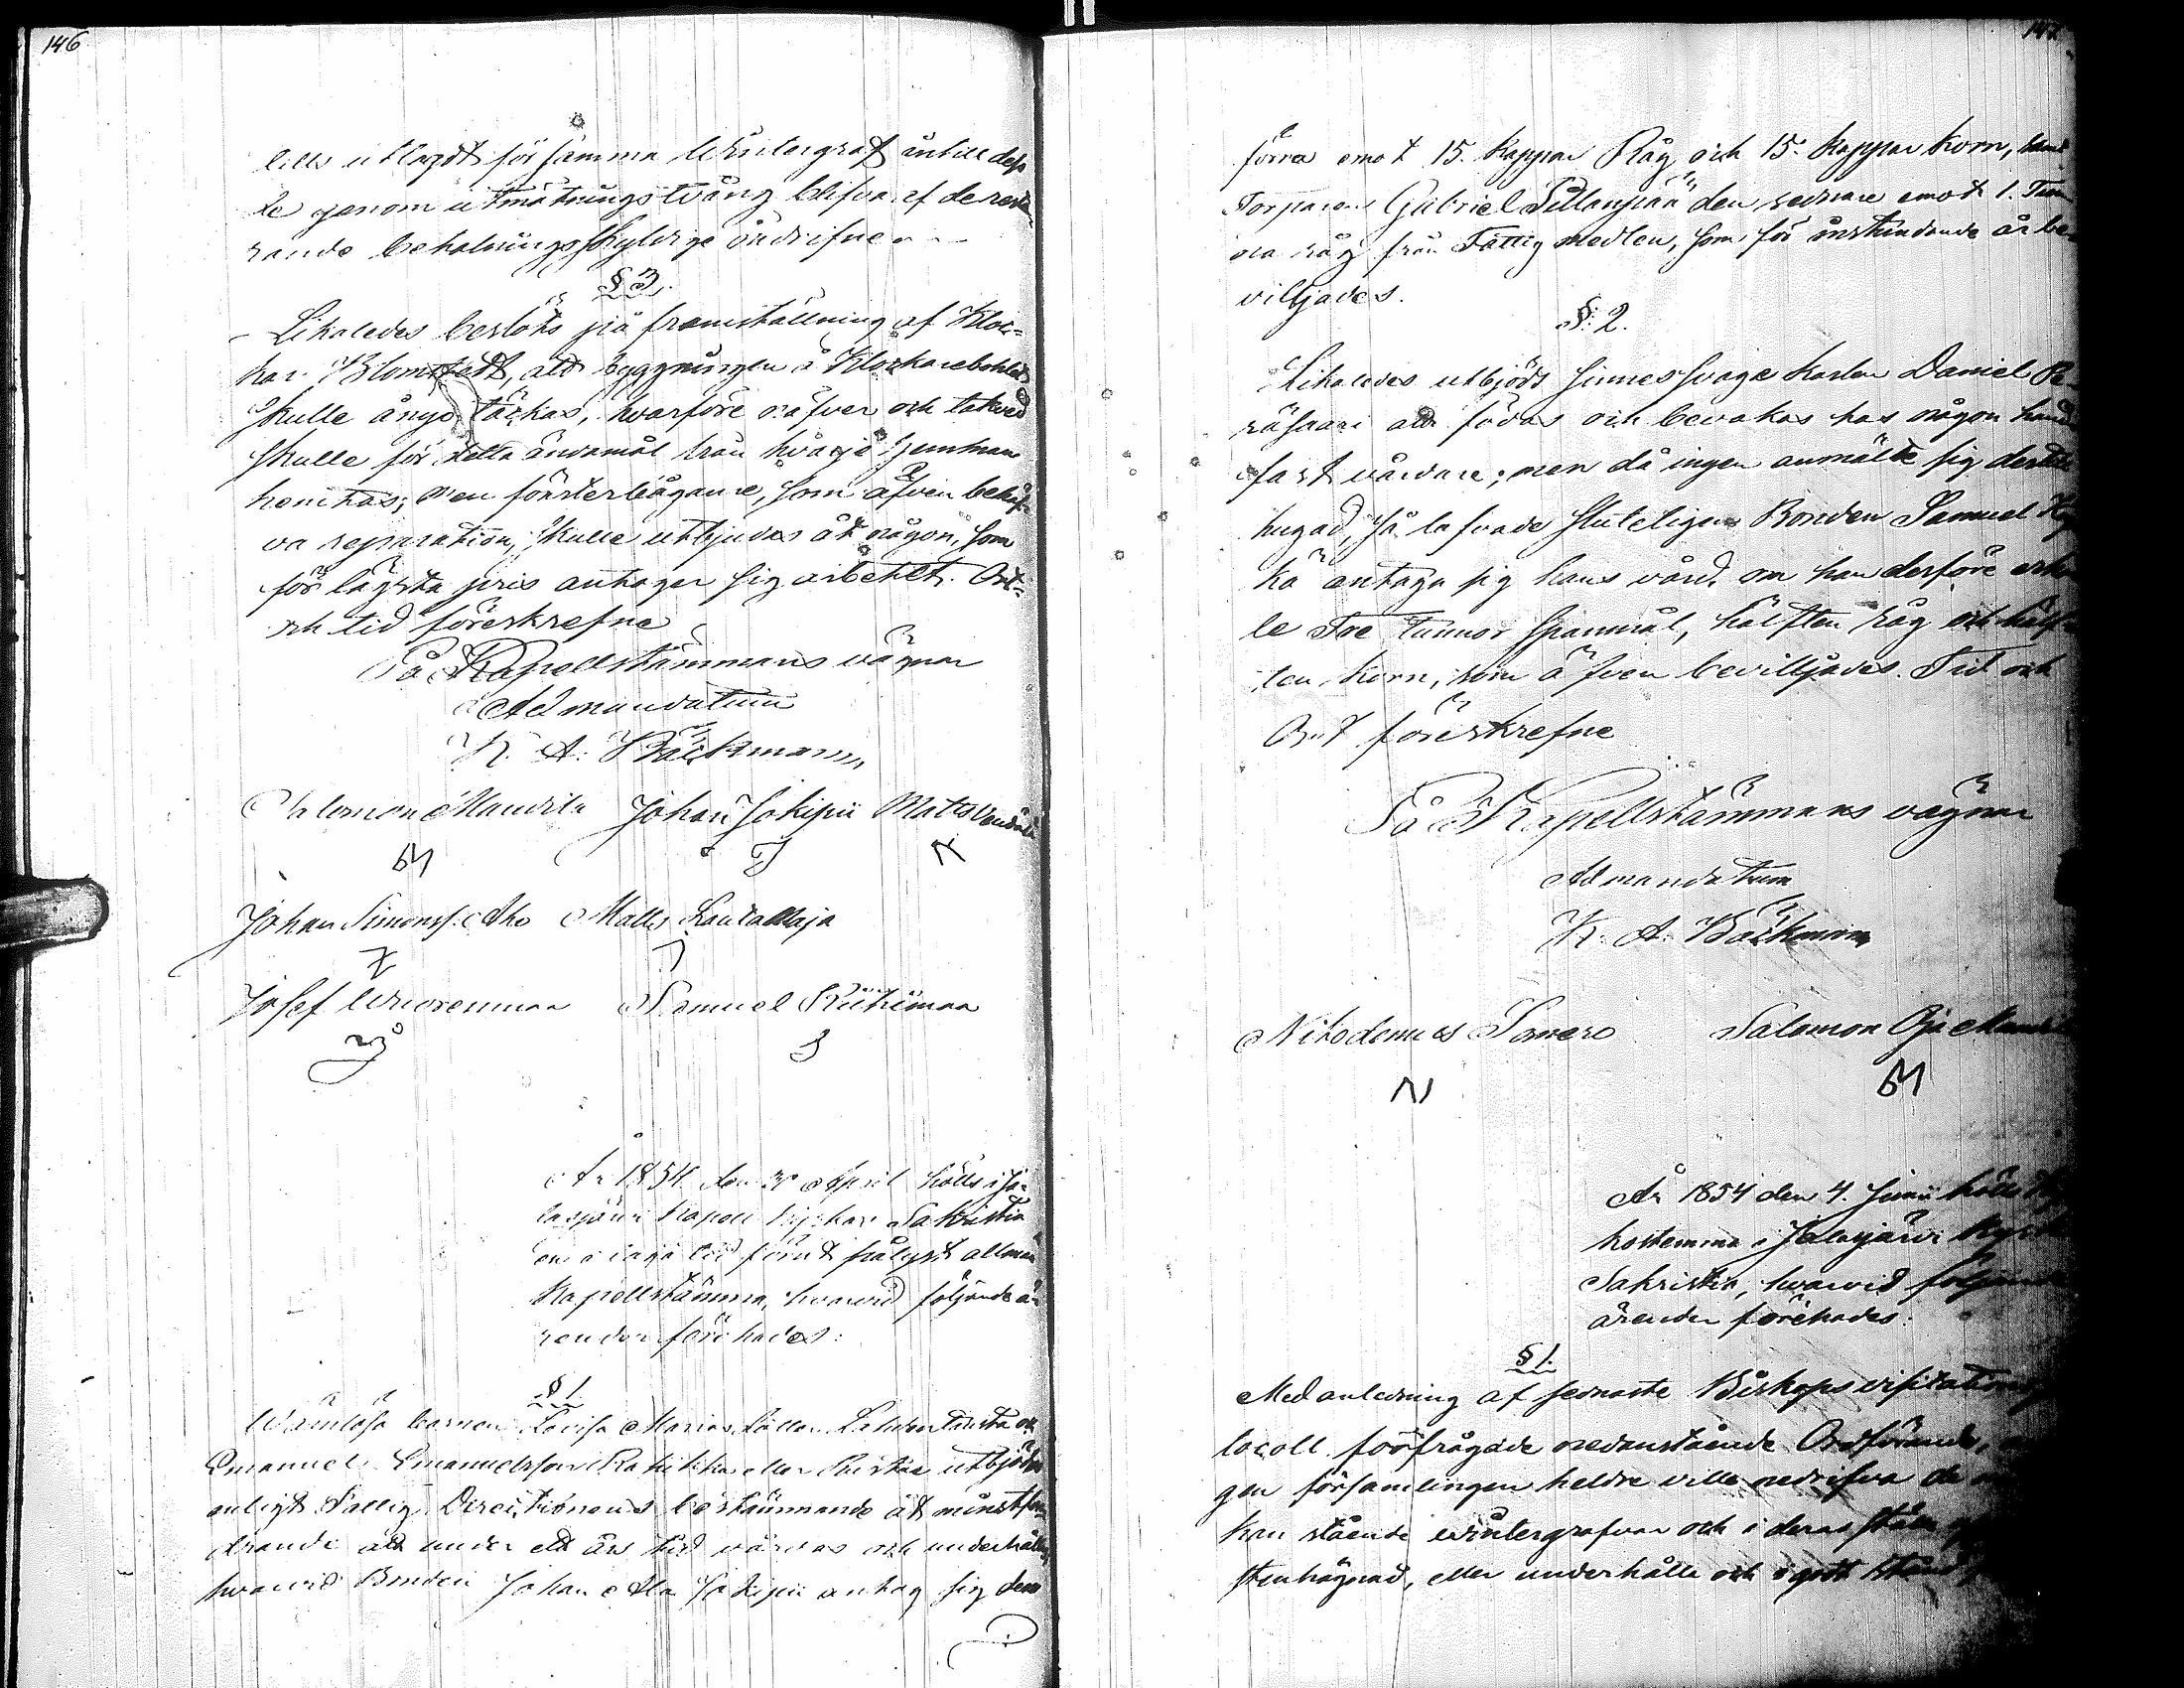 146
lills utlagdt för samma Wintergraf intill dess
de genom utmätningstvång blifva af de reste-
rande betalningsskyldige indrifne.
§ 3.
Likaledes beslöts på framställning af Kloc-
kar Blomstedt, att byggningen å Klockarebohlet
skulle ånyo täckas, hvarföre näfver och takved
skulle för detta ändamål från hvarje hemman
hemtas; men fönsterbågarne, som äfven behöf-
va reparation, skulle utbjudas åt någon, som
för lägsta pris antager sig arbetet. Ort
och tid föreskrefne
På Kapellstämmans vägnar
Ad mandatum
K. A. Bäckman
Salomon Mandila Johan Jokipii Matts
Johan Simonss. Aho Matts Rautaoja
Josef Wuorenmaa Samuel Riihimaa
År 1854 den April hölls i Ja-
lasjärvi Kapell kyrkas Sakristia
en i laga tid förut pålyst allmän
Kapellstämma, hvarvid följande ä-
renden förehades:
§ 1.
Wärnlösa barnen Lovisa Maria och
Emanuel Emanuelsson utbjöds
enligt Fattig Directionens bestämmande åt minstfor-
drande att under ett års tid vårdas och underhållas
hvarvid Bonden Johan Ala Jokipii antog sig den
147
förra emot 15. Kappar Råg och 15. Kappar Korn, samt
Torparen Gabriel Sillanpää den sednare emot 1. Tun-
na råg från Fattig medlen, som för instundande år be-
villjades.
§. 2.
Likaledes utbjöds sinnessvaga Karlen Daniel Pe-
räsaari att födas och bevakas hos någon hand-
fast vårdare; men då ingen anmälte sig dertill
hugad, så lofvade sluteligen Bonden Samuel
kä antaga sig hans vård, om han derföre erhål-
le Tre tunnor spannmål, hälften råg och hälf-
ten korn, som äfven bevilljades. Tid och
Ort föreskrefne
På Kapellstämmans vägnar
Ad mandatum
K. A. Bäckman
Nikodemus Tomero Salomon Oja Mandila
År 1854 den 4. Junii hölls
kostemma i Jalasjärvi Kyrko
Sakristia, hvarvid följande
ärenden förehades:
§ 1.
Med anledning af sednaste Biskops visitations
tocoll förfrågade nedanstående Ordförande,
gen församlingen heldre ville nedrifva de
kan stående wintergrafvar och i deras ställe
stenhägnad, eller underhålla och i godt stånd